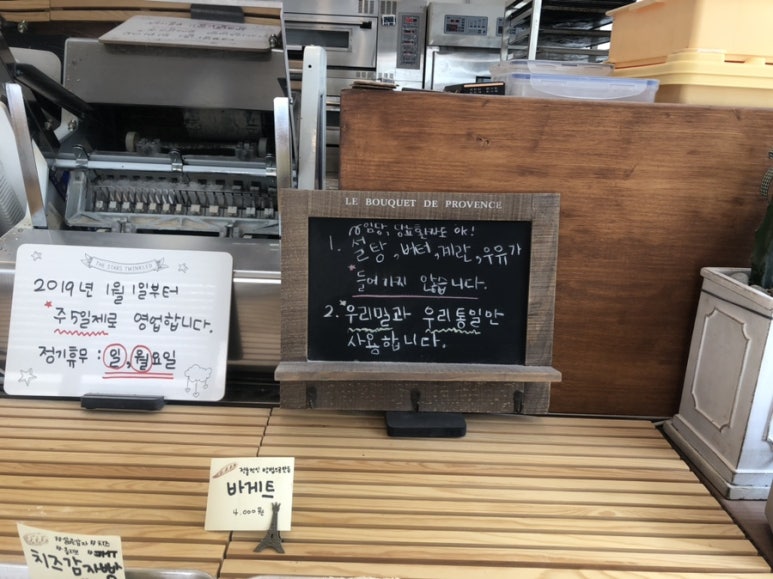 THE STARS TWINKLED
2019년 1월 1일부터
*주5일제로 영업합니다.
정기휴무 : 일,월요일
LE BOUQUET DE PROVENCE
1. 설탕, 버터, 계란, 우유가
*들어가지 않습니다.
2. *우리밀과 우리통밀만
사용합니다.
바게트
4,000원
치즈감자빵